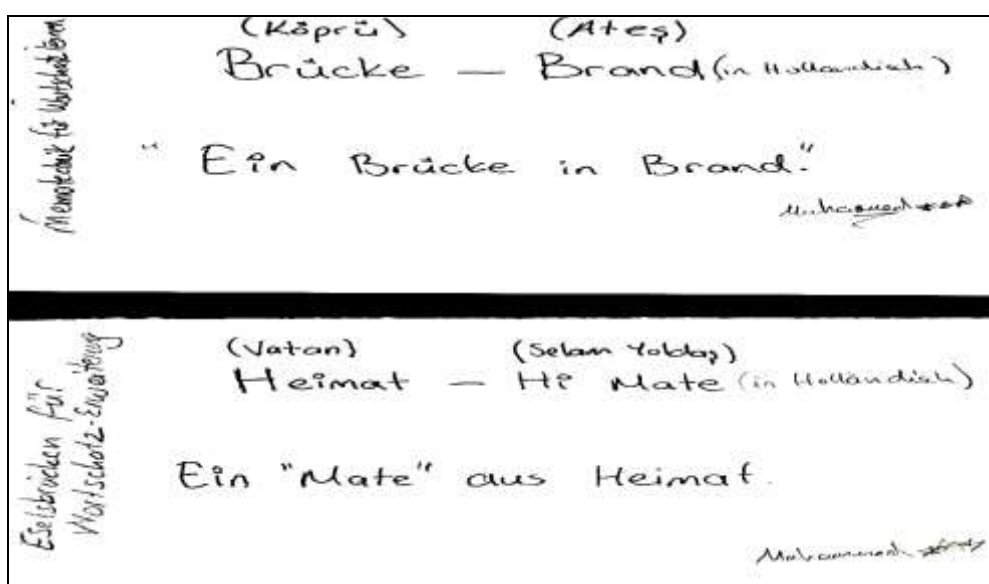 Memotechnik für Wortschatzlernen
(Köprü) (Ateş)
Brücke — Brand (in Holländisch)
" Ein Brücke in Brand."
Muhammed
Eselsbrücken für
Wortschatz-Erweiterung
(Vatan) (Selam Yoldaş)
Heimat — Hi Mate (in Holländisch)
Ein "Mate" aus Heimat.
Muhammed